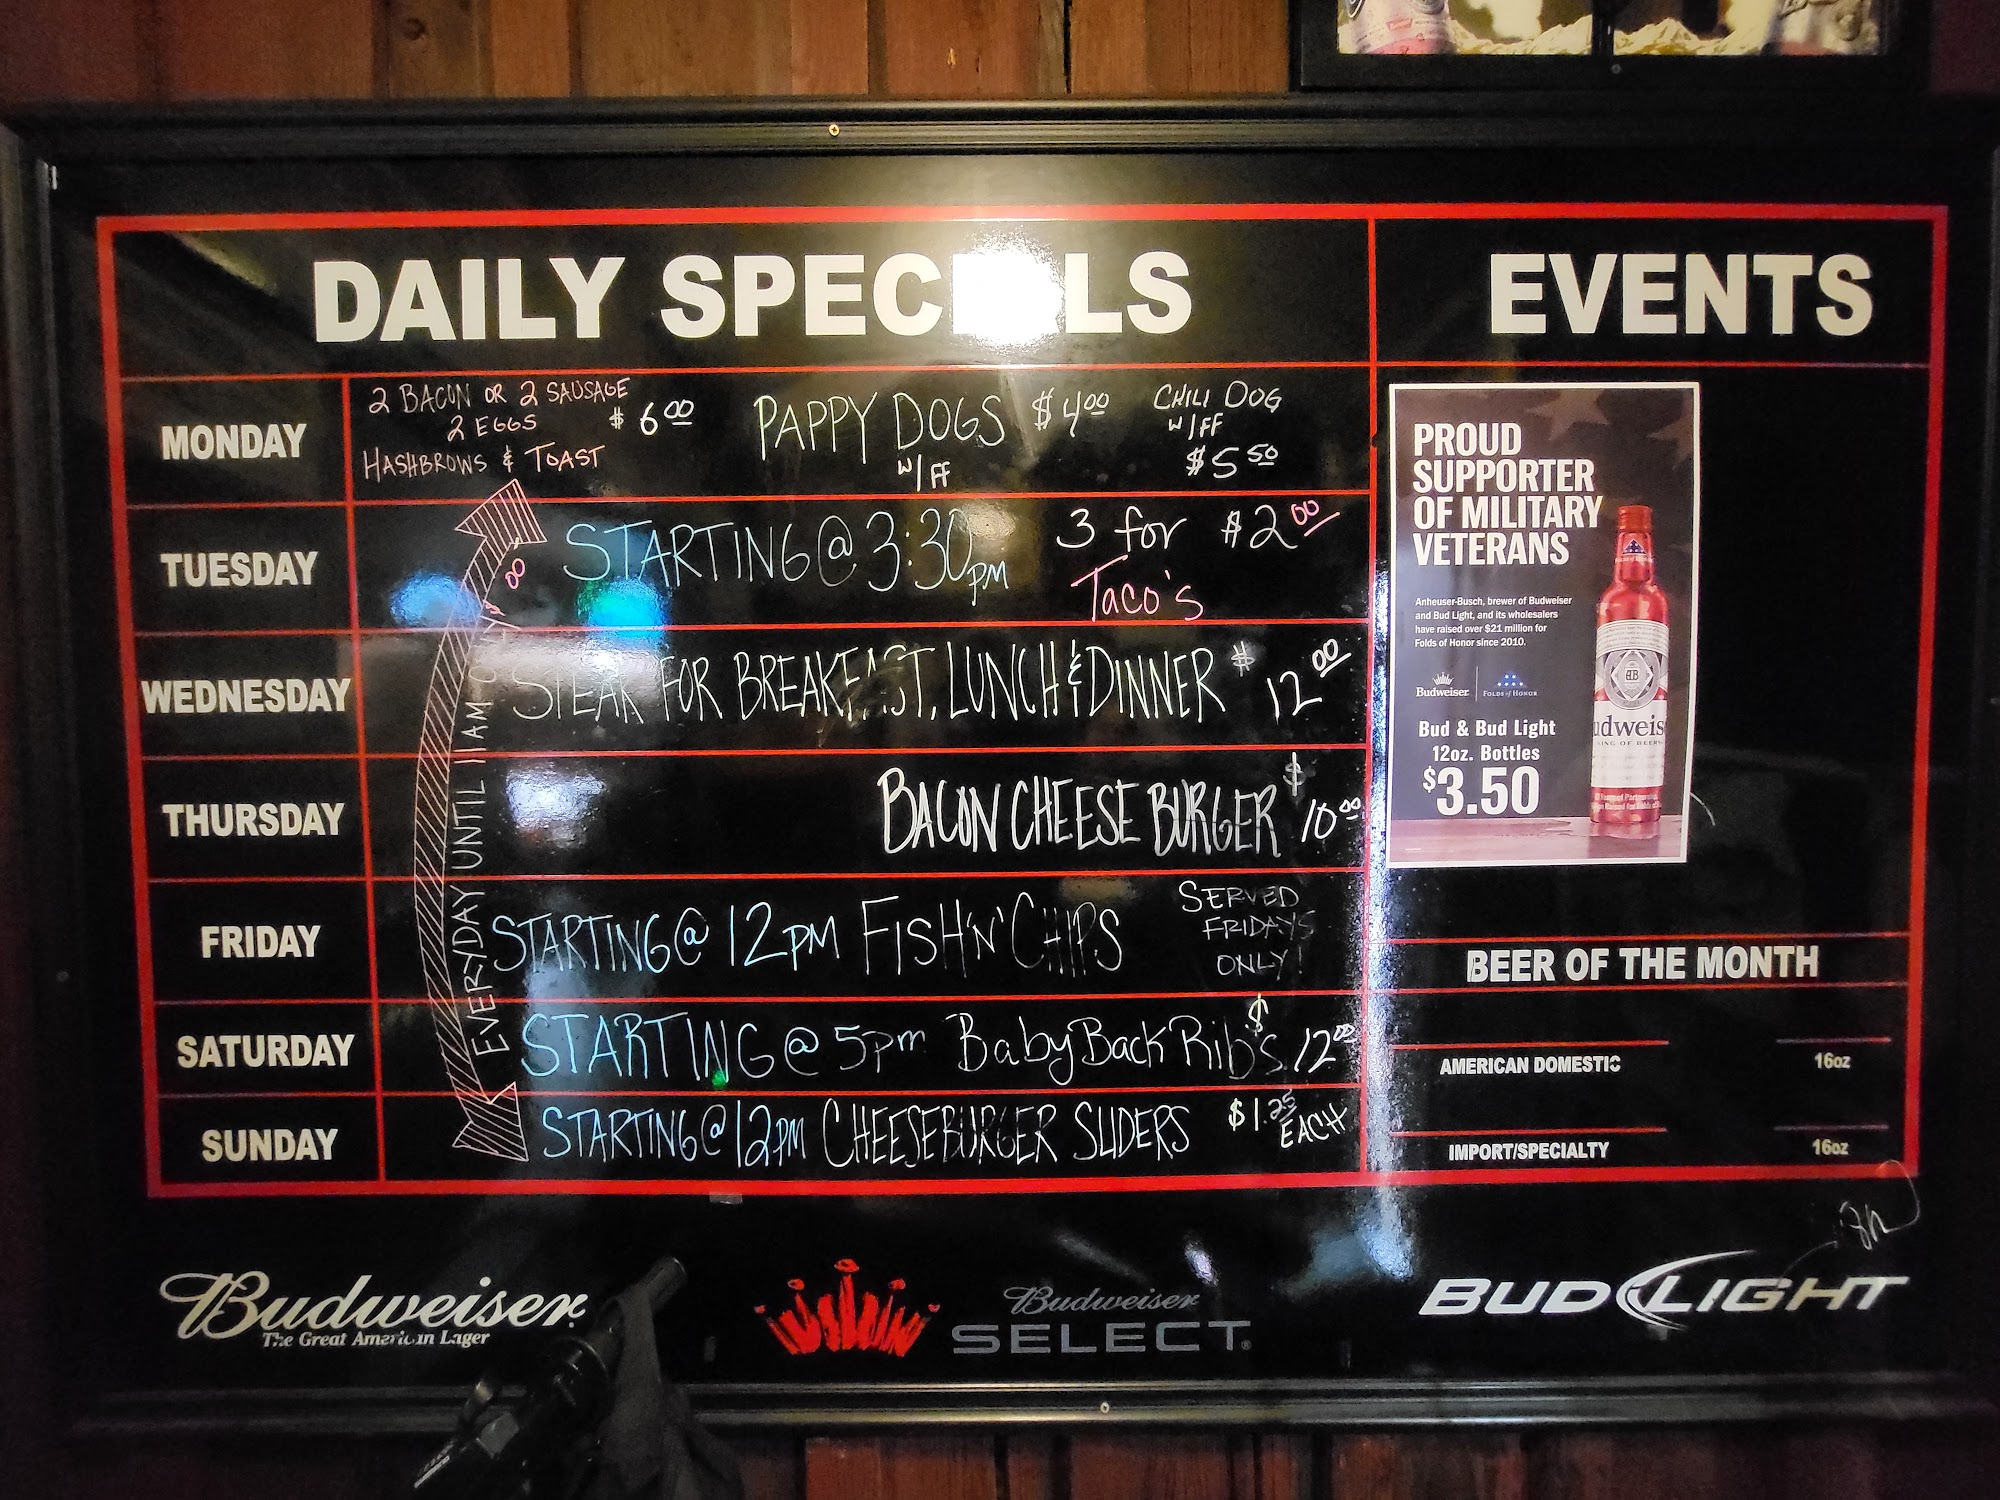 DAILY SPECIALS
EVENTS
MONDAY
2 BACON OR 2 SAUSAGE
2 EGGS
$6.00
HASHBROWS & TOAST
PAPPY DOGS $4.00
W/FF
CHILI DOG
W/FF
$5.50
TUESDAY
STARTING @ 3:30pm
3 for $2.00
Taco's
WEDNESDAY
STEAK FOR BREAKFAST, LUNCH & DINNER $12.00
THURSDAY
BACON CHEESE BURGER $10.00
FRIDAY
STARTING @ 12PM FISH'N'CHIPS
SERVED
FRIDAYS
ONLY!
SATURDAY
STARTING @ 5pm Baby Back Rib's $12.00
SUNDAY
STARTING @ 12PM CHEESEBURGER SLIDERS $1.25
EACH
EVERYDAY UNTIL 11AM ONLY
PROUD
SUPPORTER
OF MILITARY
VETERANS
Anheuser-Busch, brewer of Budweiser
and Bud Light, and its wholesalers
have raised over $21 million for
Folds of Honor since 2010.
Budweiser
FOLDS of HONOR
Bud & Bud Light
12oz. Bottles
$3.50
udweis
KING OF BEERS
BEER OF THE MONTH
AMERICAN DOMESTIC 16oz
IMPORT/SPECIALTY 16oz
Budweiser
The Great American Lager
Budweiser
SELECT
BUD LIGHT